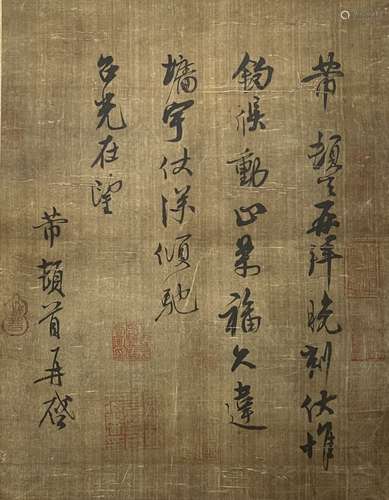 芾頓首再拜晚刻伏惟
鈞候動止萬福久違
墻宇伏深傾馳
台光在望
芾頓首再啓